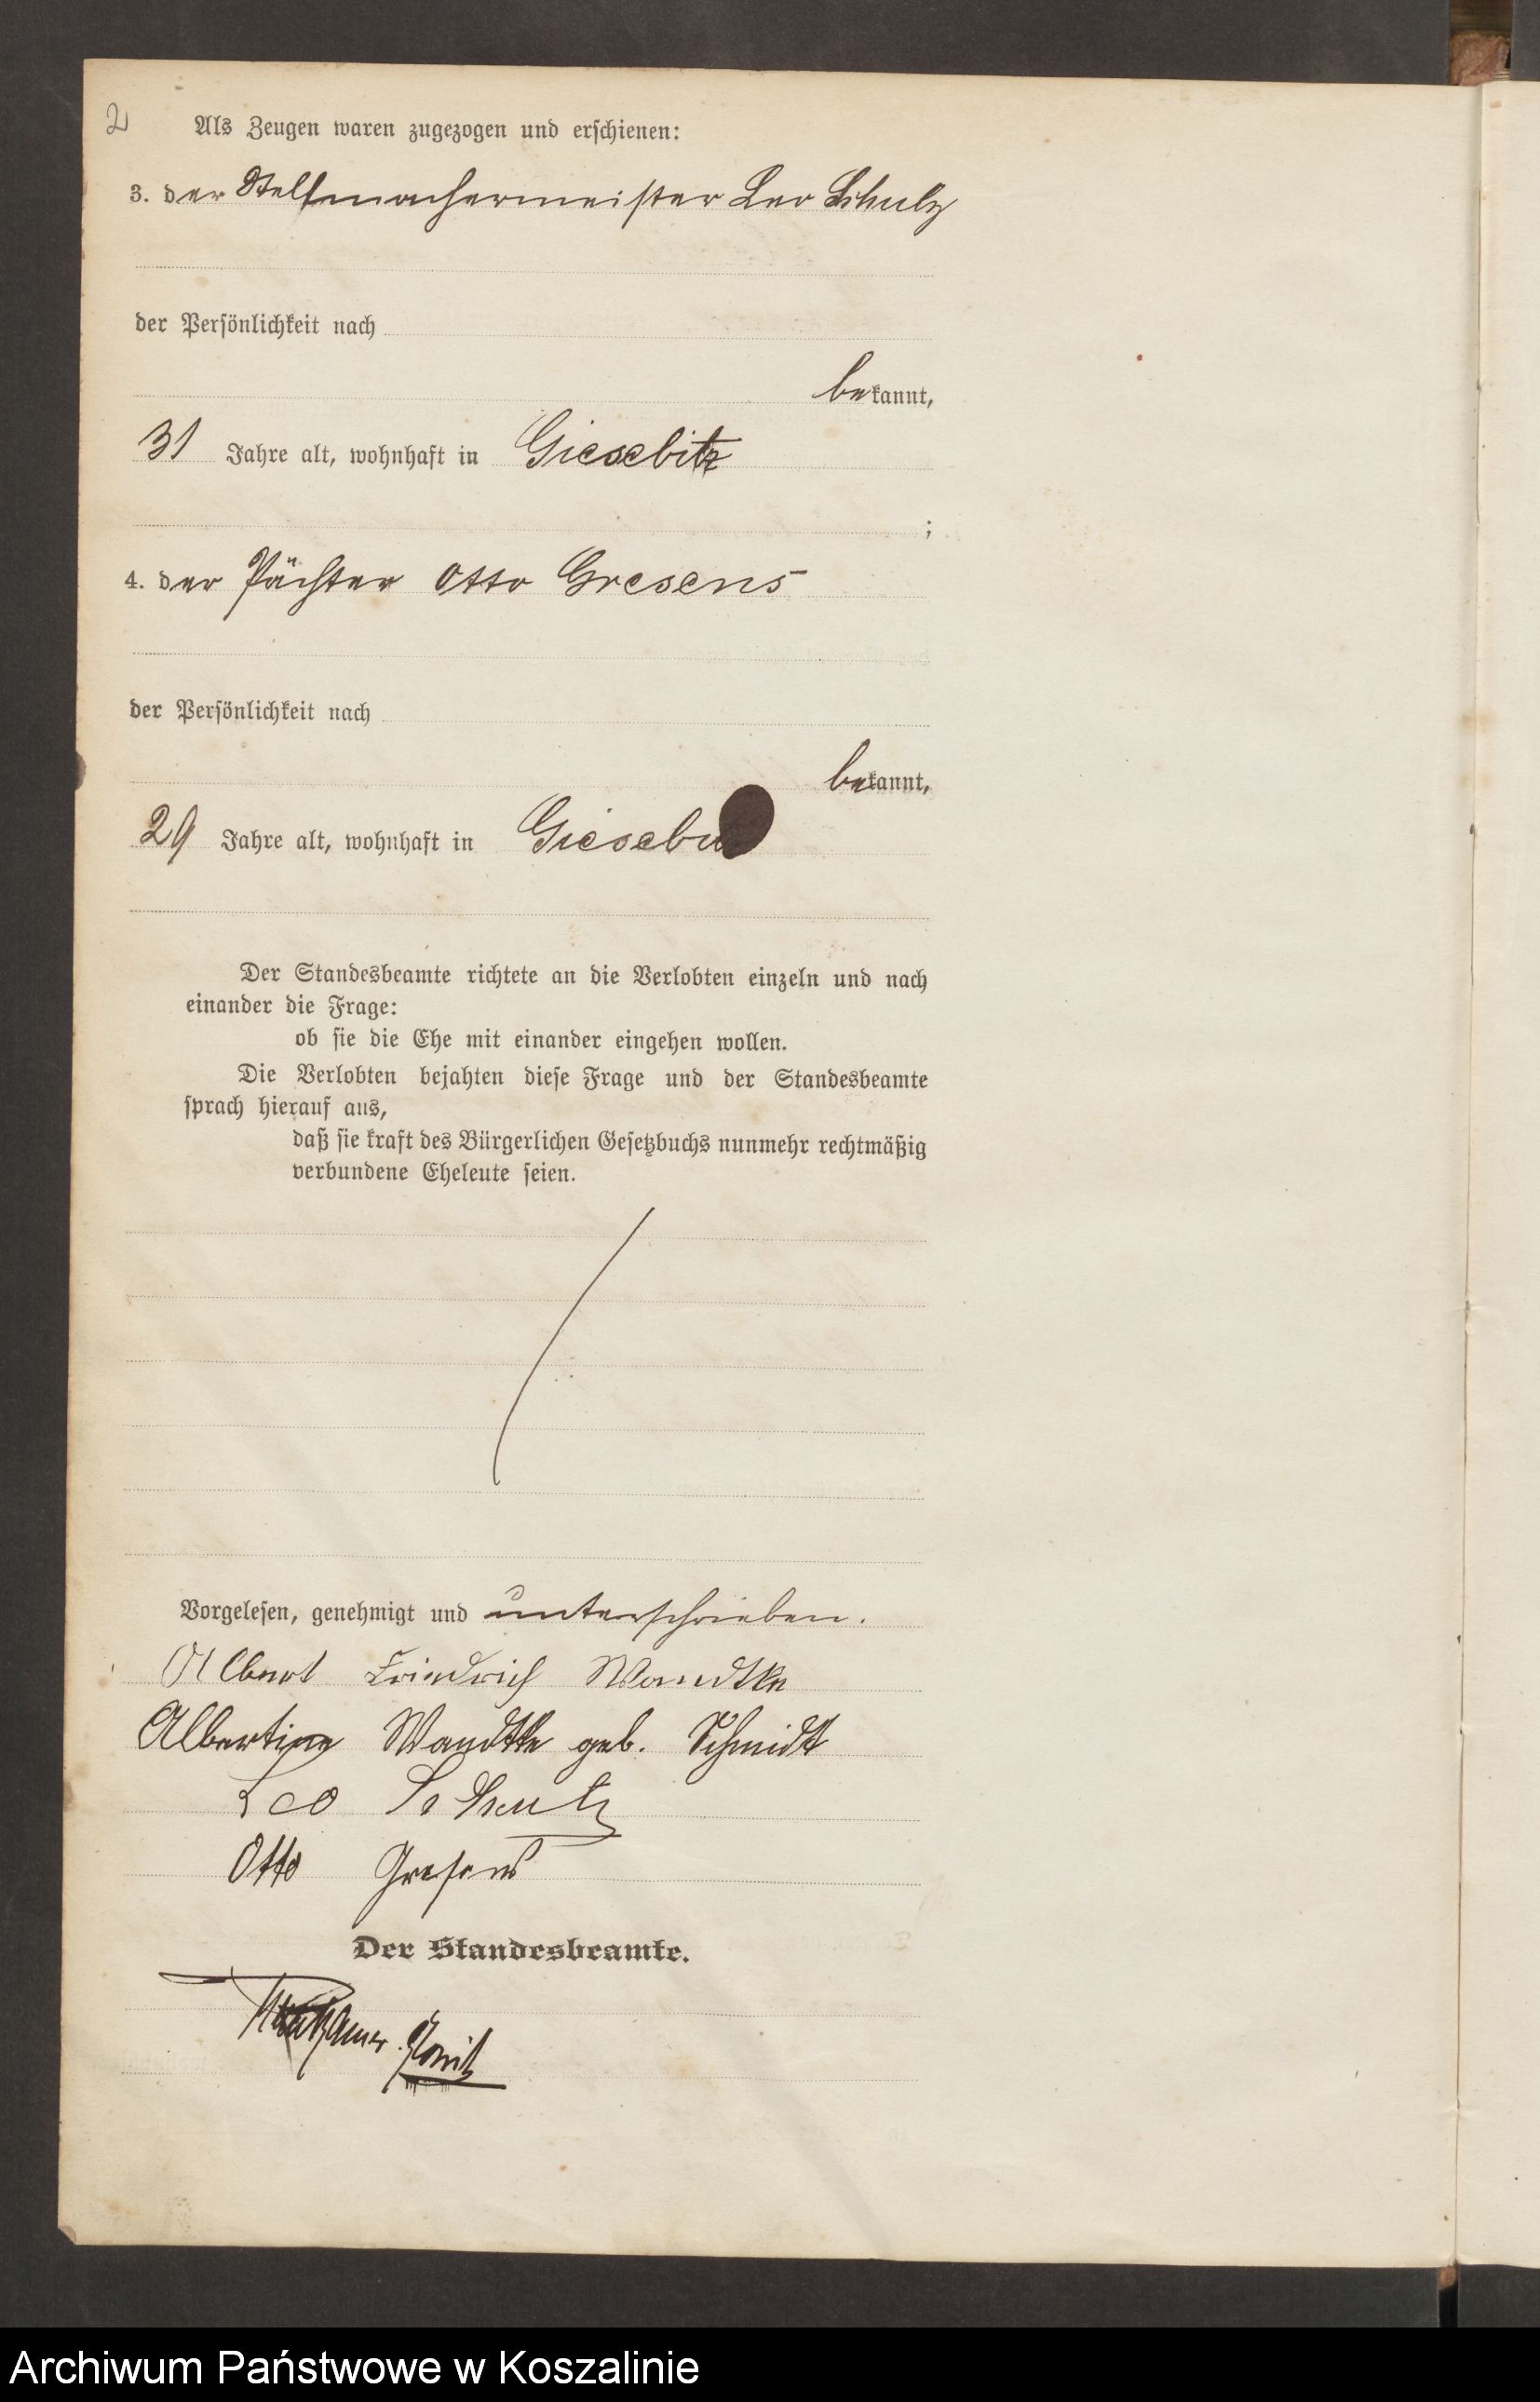 2
Als Zeugen waren zugezogen und erschienen:
3. der Stellmachermeister Leo Schulz
der Persönlichkeit nach
bekannt,
31 Jahre alt, wohnhaft in Giesebitz
;
4. der Pächter Otto Gresens
der Persönlichkeit nach
bekannt,
29 Jahre alt, wohnhaft in
Der Standesbeamte richtete an die Verlobten einzeln und nach
einander die Frage:
ob sie die Ehe mit einander eingehen wollen.
Die Verlobten bejahten diese Frage und der Standesbeamte
sprach hierauf aus,
daß sie kraft des Bürgerlichen Gesetzbuchs nunmehr rechtmäßig
verbundene Eheleute seien.
Vorgelesen, genehmigt und unterschrieben.
Albert Friedrich Wandtke
Albertine Wandtke geb. Schmidt
Leo Schulz
Otto Gresens
Der Standesbeamte.
Archiwum Państwowe w Koszalinie